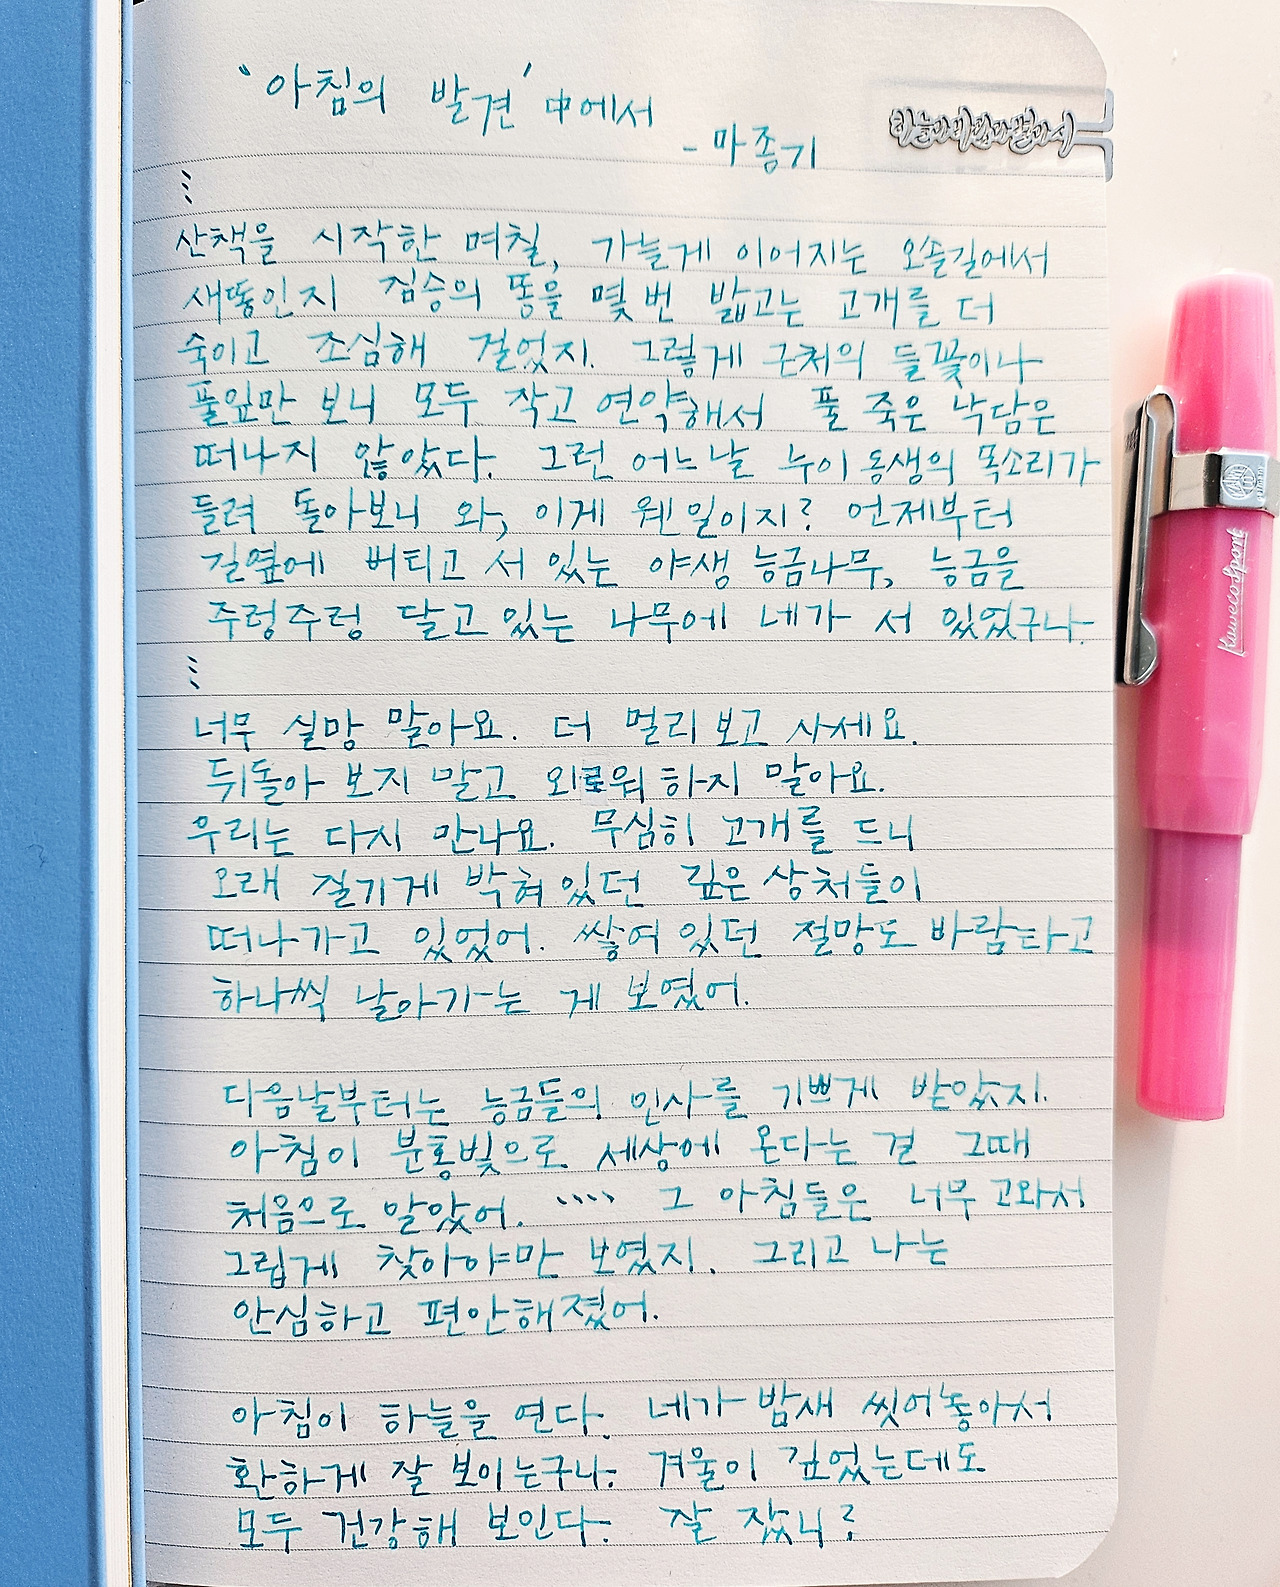 '아침의 발견' 中에서
- 마종기
⋮
산책을 시작한 며칠, 가늘게 이어지는 오솔길에서
새똥인지 짐승의 똥을 몇 번 밟고는 고개를 더
숙이고 조심해 걸었지. 그렇게 근처의 들꽃이나
풀잎만 보니 모두 작고 연약해서 풀 죽은 낙담은
떠나지 않았다. 그런 어느날 누이동생의 목소리가
들려 돌아보니 와, 이게 웬일이지? 언제부터
길옆에 버티고 서 있는 야생 능금나무, 능금을
주렁주렁 달고 있는 나무에 네가 서 있었구나.
⋮
너무 실망 말아요. 더 멀리 보고 사세요.
뒤돌아 보지 말고 외로워 하지 말아요.
우리는 다시 만나요. 무심히 고개를 드니
오래 질기게 박혀 있던 깊은 상처들이
떠나가고 있었어. 쌓여 있던 절망도 바람타고
하나씩 날아가는 게 보였어.
다음날부터는 능금들의 인사를 기쁘게 받았지.
아침이 분홍빛으로 세상에 온다는 걸 그때
처음으로 알았어. ···· 그 아침들은 너무 고와서
그립게 찾아야만 보였지. 그리고 나는
안심하고 편안해졌어.
아침이 하늘을 연다. 네가 밤새 씻어놓아서
환하게 잘 보이는구나. 겨울이 깊었는데도
모두 건강해 보인다. 잘 잤니?
하늘과바람과별과시
kawecosport